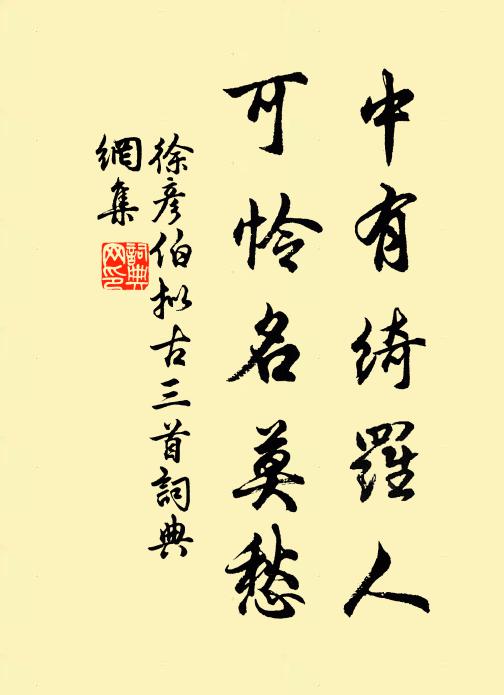 中有绮羅人
可怜名莫愁
徐彦伯拟古三首詞典
網集
詞典
网印